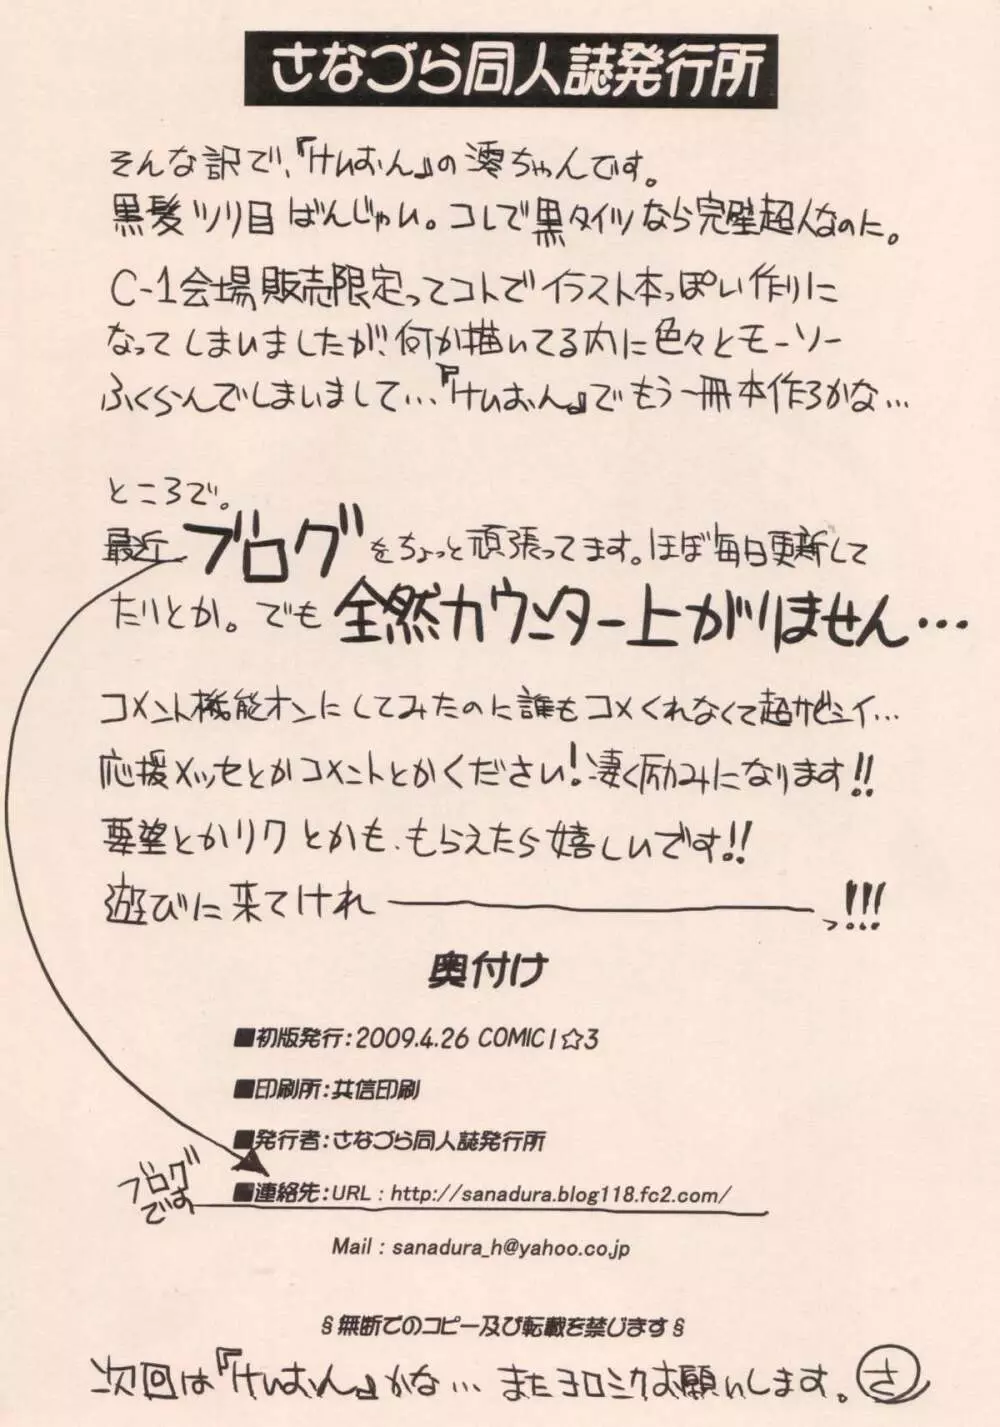 さなづら同人誌発行所
そんな訳で、『けいおん』の澪ちゃんです。
黒髪ツリ目ばんじゃい。コレで黒タイツなら完璧超人なのに。
C-1会場販売限定ってコトでイラスト本っぽい作りに
なってしまいましたが!何か描いてる内に色々とモーソー
ふくらんでしまいまして…『けいおん』でもう一冊本作ろかな…
ところで。
最近ブログをちょっと頑張ってます。ほぼ毎日更新して
たりとか。でも全然カウンター上がりません…
コメント機能オンにしてみたのに誰もコメくれなくて超サビシイ…
応援メッセとかコメントとかください!凄く励みになります!!
要望とかリクとかも、もらえたら嬉しいです!!
遊びに来てけれ――――――っ!!!
奥付け
■初版発行:2009.4.26 COMIC1☆3
■印刷所:共信印刷
■発行者:さなづら同人誌発行所
ブログです
■連絡先:URL : http://sanadura.blog118.fc2.com/
Mail : sanadura_h@yahoo.co.jp
§無断でのコピー及び転載を禁じます§
次回は『けいおん』かな… またヨロシクお願いします。さ